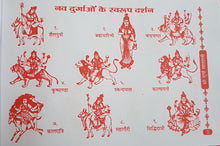 नव दुर्गाओं के स्वरूप दर्शन
शैलपुत्री
ब्रह्मचारिणी
चन्द्रघण्टा
कूष्माण्डा
स्कन्दमाता
कात्यायनी
कालरात्रि
महागौरी
सिद्धिदात्री